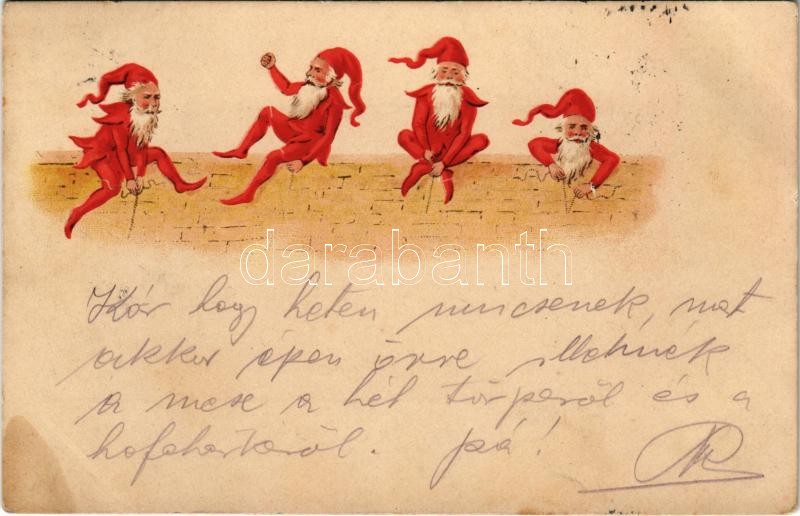 darabanth
Kár hogy heten nincsenek, mert
akkor épen össze illenék
a mese a hét törpéről és a
hófehérkéről. pá!